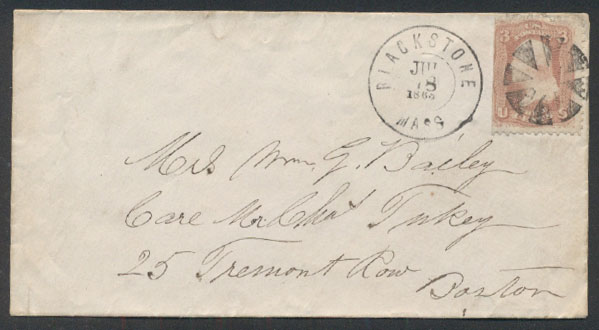 BLACKSTONE
JUL
18
MASS
3 3
U
Mrs Wm. G. Bailey
Care Mr Turkey
25 Tremont Row
Boston